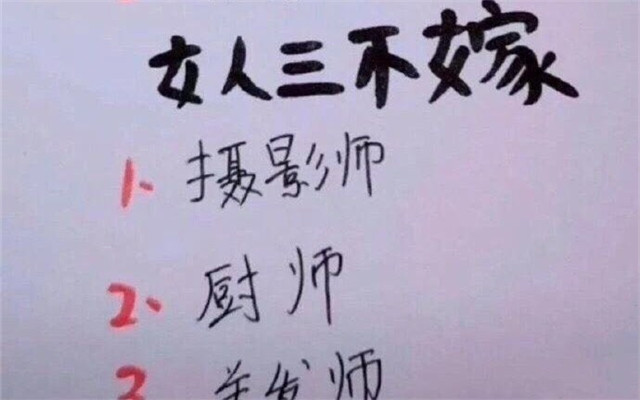 女人三不嫁
1、摄影师
2、厨师
3 美发师